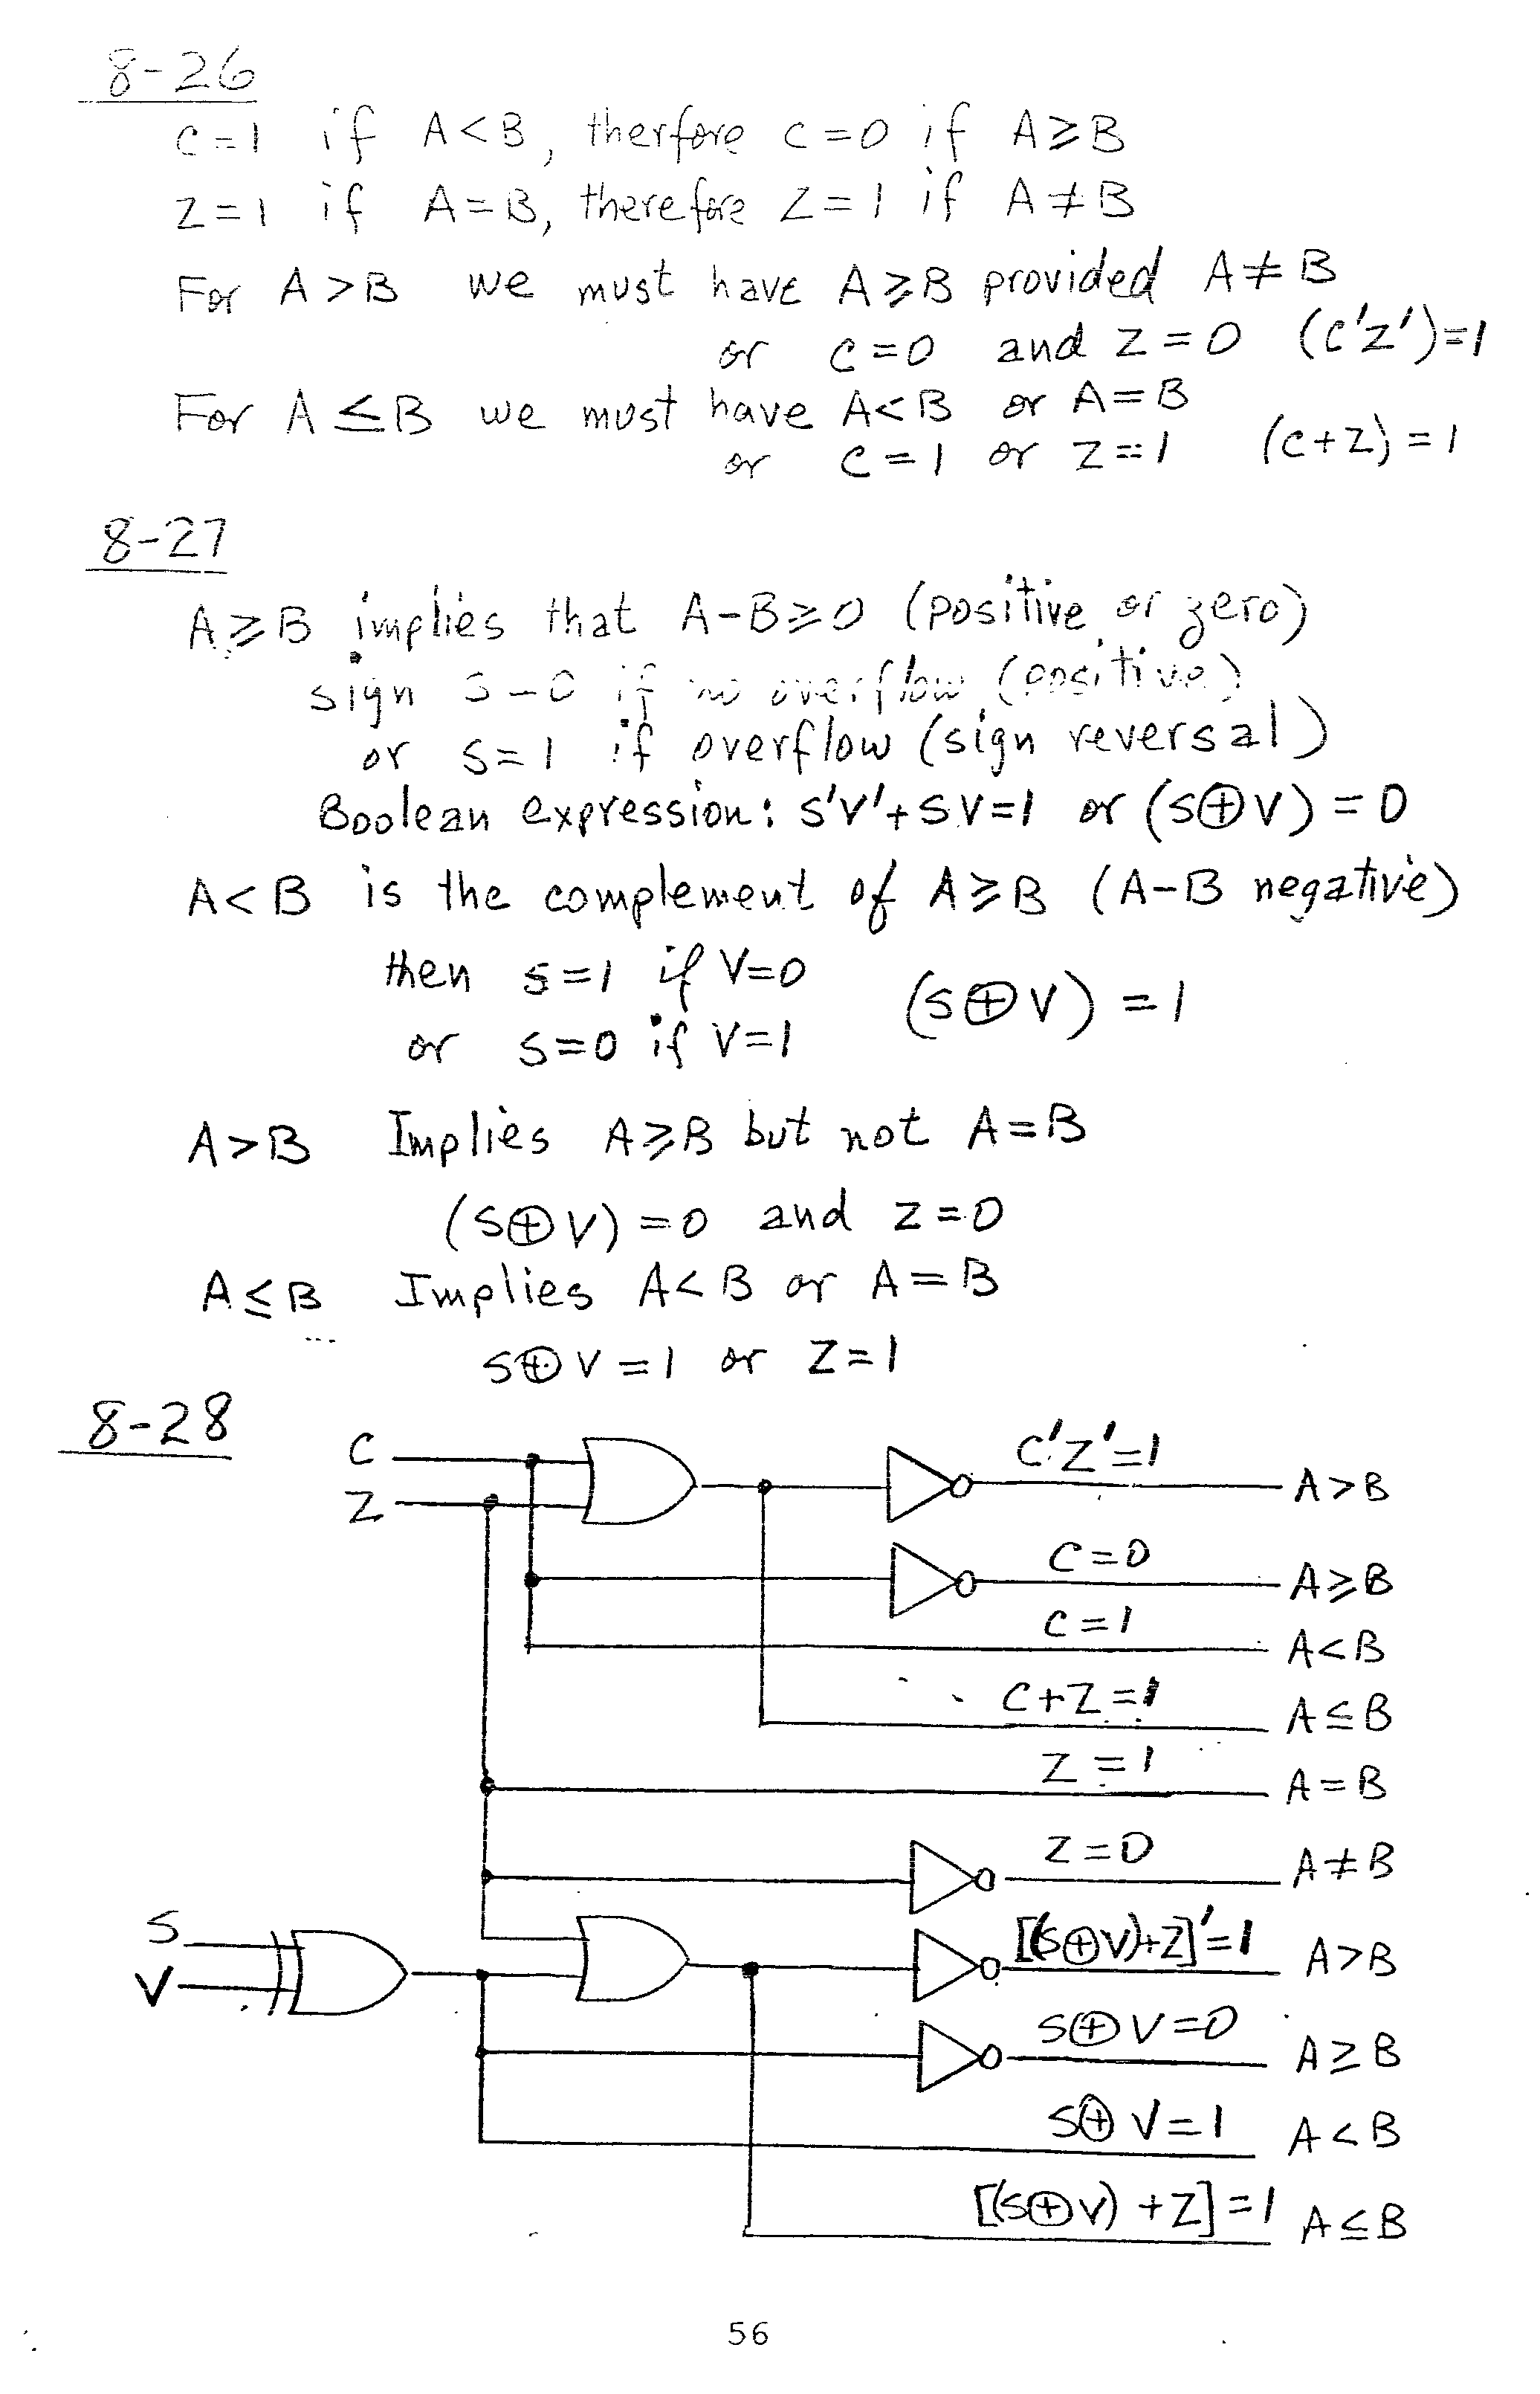 8-26
C=1 if A<B, therfore C=0 if A≥B
Z=1 if A=B, therefore Z=1 if A≠B
For A>B we must have A≥B provided A≠B
or C=0 and Z=0 (C'Z')=1
For A≤B we must have A<B or A=B
or C=1 or Z=1 (C+Z)=1
8-27
A≥B implies that A-B≥0 (positive or zero)
sign S=0 if no overflow (positive)
or S=1 if overflow (sign reversal)
Boolean expression: S'V'+SV=1 or (S⊕V)=0
A<B is the complement of A≥B (A-B negative)
then S=1 if V=0
or S=0 if V=1 (S⊕V)=1
A>B Implies A≥B but not A=B
(S⊕V)=0 and Z=0
A≤B Implies A<B or A=B
S⊕V=1 or Z=1
8-28
C
Z
C'Z'=1 A>B
C=0 A≥B
C=1 A<B
C+Z=1 A≤B
Z=1 A=B
Z=0 A≠B
S
V
[(S⊕V)+Z]'=1 A>B
S⊕V=0 A≥B
S⊕V=1 A<B
[(S⊕V)+Z]=1 A≤B
56